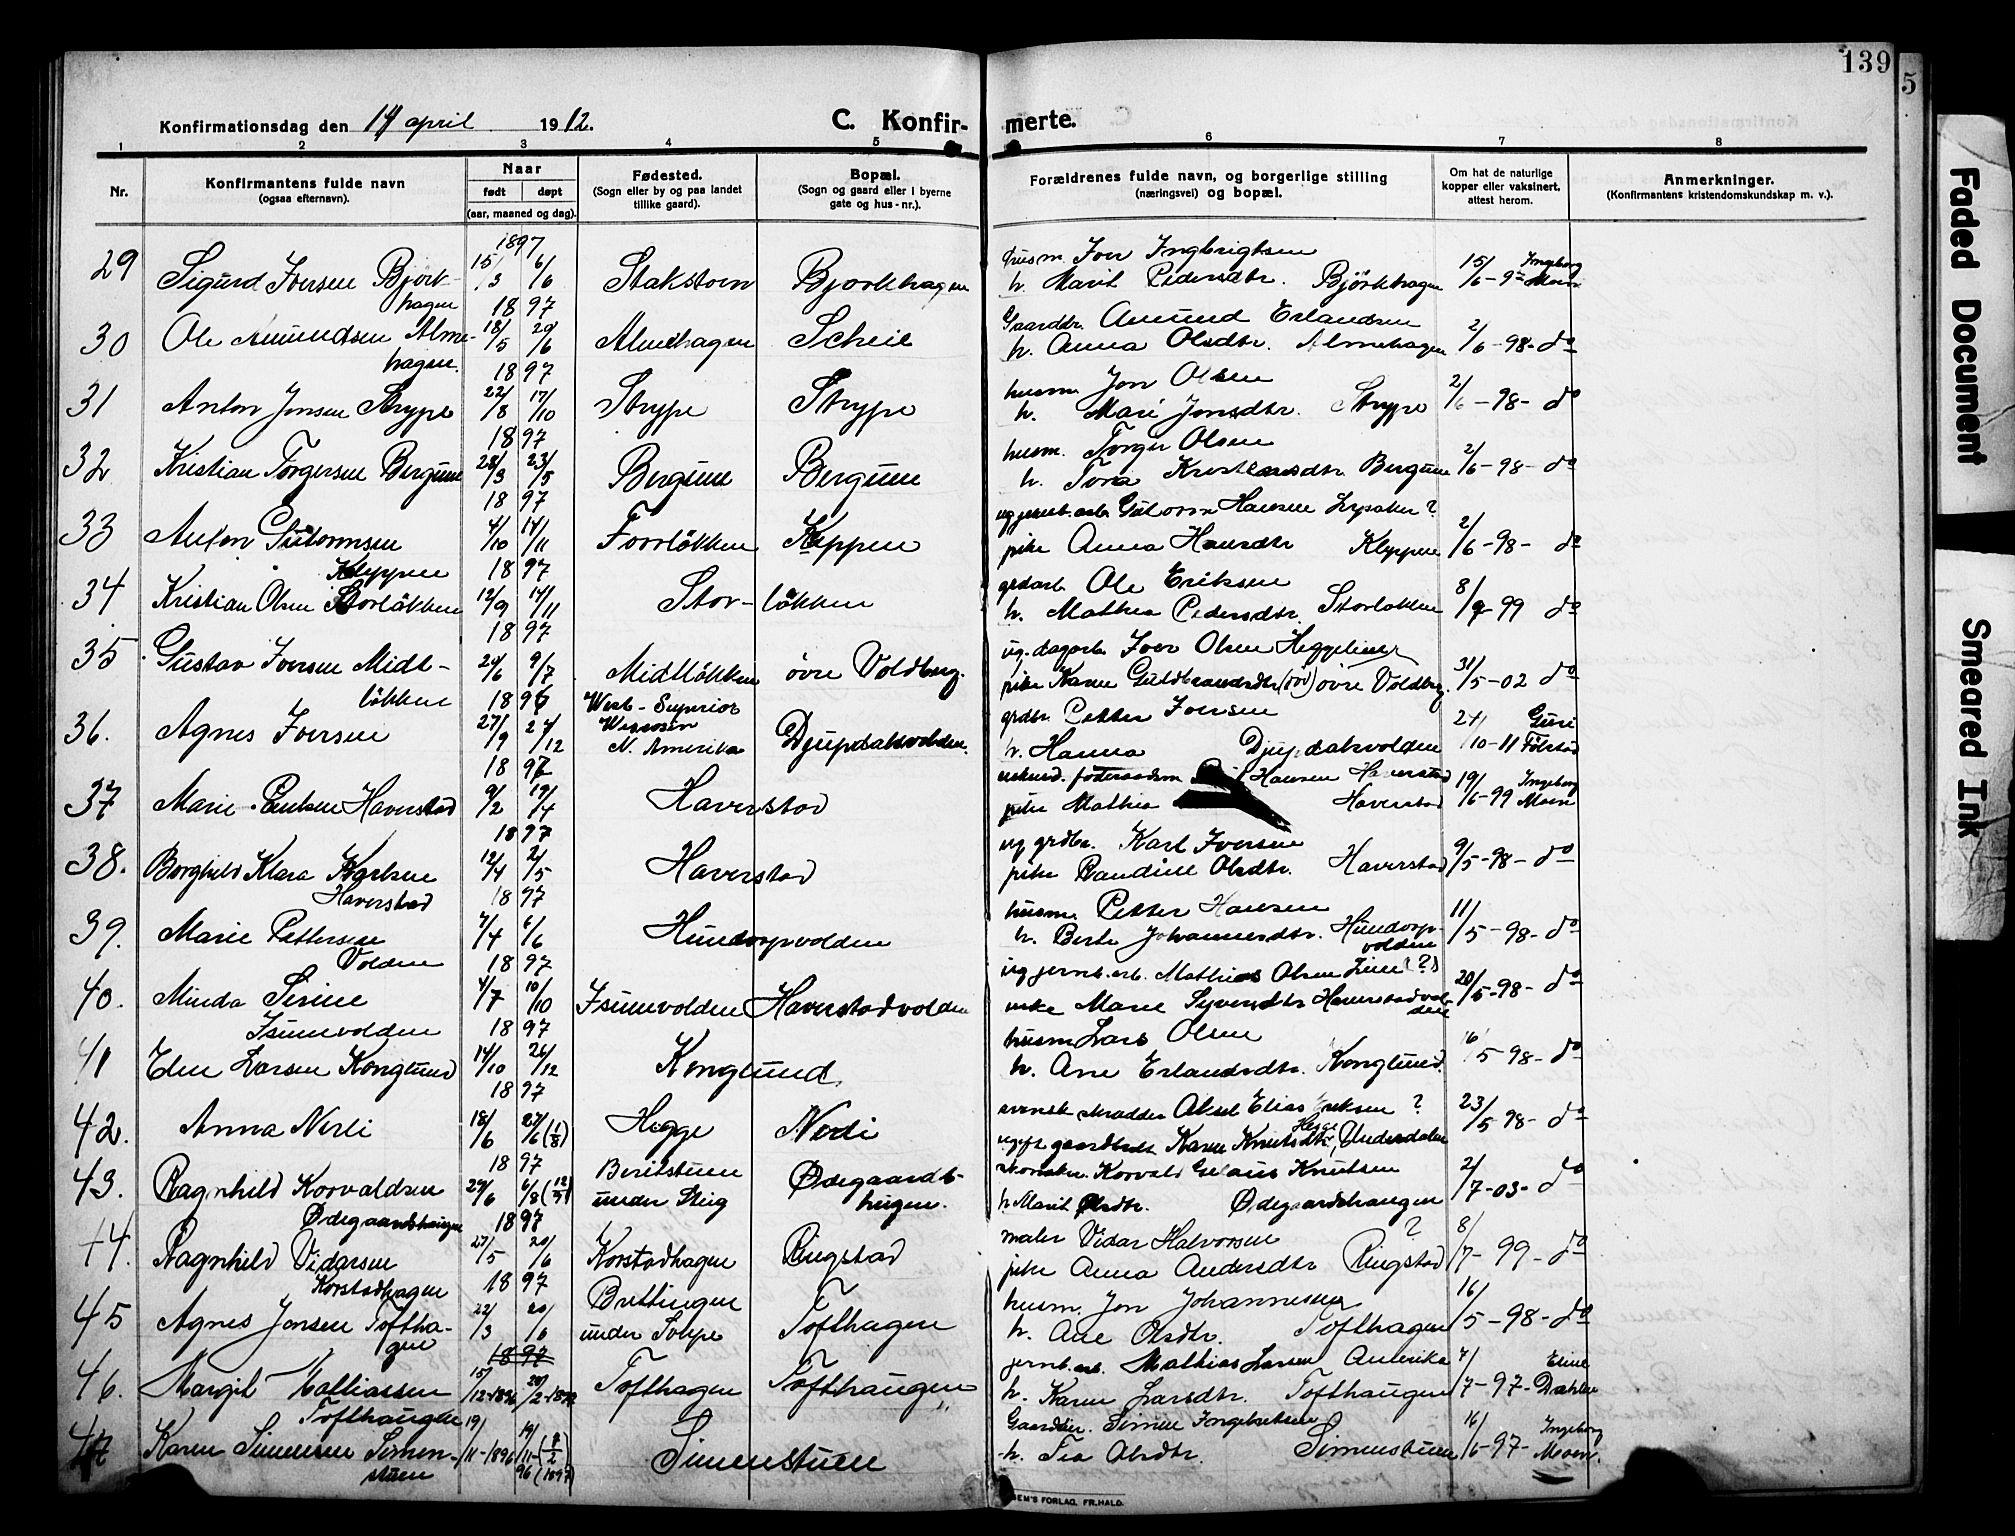 139
5
Faded Document
Smeared Ink
Konfirmationsdag den 14 april 1912.
C. Konfir-
merte.
1 2 3 4 5 6 7 8
Nr.
Konfirmantens fulde navn
(ogsaa efternavn).
Naar
født døpt
(aar, maaned og dag).
Fødested.
(Sogn eller by og paa landet
tillike gaard).
Bopæl.
(Sogn og gaard eller i byerne
gate og hus-nr.).
Forældrenes fulde navn, og borgerlige stilling
(næringsvei) og bopæl.
Om hat de naturlige
kopper eller vaksinert,
attest herom.
Anmerkninger.
(Konfirmantens kristendomskundskap m. v.).
1897
29 Sigurd Iversen Bjørk- 15/3 6/6 Stakstoen Bjørkhagen husm. Iver Ingbrigtsen
hagen h. Marit Pedersdtr. Björkhagen 15/6-97 Ingeborg Moen
1897
30 Ole Amundsen Alme- 18/5 20/6 Almehagen Scheie Gaardbr. Amund Erlandsen
hagen. h. Anna Olsdtr. Almehagen 2/6-98- do
1897
31 Anton Jonsen Strype 22/8 17/10 Strype Strype husm. Jon Olsen
h. Mari Jonsdtr. Strype 2/6-98- do
1897
32 Kristian Torgersen Bergum 28/3 23/5 Bergum Bergum husm. Torger Olsen
h. Tora Kristiansdtr. Bergum 2/6-98- do
1897
33 Anton Gutormsen 4/10 14/11 Forrløkken Kleppen ug jernb. arb. Gutorm Hansen Lysaker?
Kleppen pike Anna Hansdtr Kleppen 2/6-98- do
1897
34 Kristian Olsen Storløkken 12/9 14/11 Stor-løkken grdarb. Ole Eriksen
h. Mathea Pedersdtr. Storløkken 8/9-99 do
1897
35 Gustav Iversen Midt- 24/6 9/7 Midtløkken övre Voldberg. ug. dagarb. Iver Olsen Heggelien
løkken pike Karen Guldbrandsdtr övre Voldberg. 31/5-02 do
1896
36. Agnes Iversen 27/9 27/12 West-Superior
N. Amerika Djupdalsvolden. grdbr. Petter Iversen
h. Hanna Djupdalsvolden 24/10-11 Guri
1897
37 Marie Paulsen Haverstad 9/2 19/4 Haverstad Hansen Haverstad
pike Mathea Haverstad 19/6-99 Ingeborg Moen
1897
38. Borghild Klara Karlsen 12/4 2/5 Haverstad ug grdbr. Karl Iversen
Haverstad pike Randine Olsdtr. Haverstad 9/5-98- do
1897
39. Marie Pettersen 7/4 6/6 Hundorpvolden husm. Petter Hansen
Volden h. Berte Johannesdtr. Hundorp-
volden 11/5-98- do
1897
40. Minda Sirine 4/7 10/10 Isumvolden Haverstadvolden ug jernb. arb. Mathias Olsen Lien (?)
Isumvolden enke Marie Syversdtr Haverstadvol-
den 20/5-98- do
1897
41 Elen Larsen Konglund 14/10 26/12 Konglund. husm Lars Olsen
h. Ane Erlandsdtr. Konglund. 16/5-98- do
1897
42. Anna Nerli 18/6 27/6 (1/8) Hegge Nerli svensk skrædder Aksel Elias Eriksen ?
Karen Knutsdtr, Hegge 23/5 98- do
1897
43. Ragnhild Korvaldsen 29/6 6/8 (12/9) Beritstuen
under Steig Ødegaards-
haugen. Korvald Knutsen
Ødegaardshaugen h. Marit Olsdtr. Ødegaardshaugen 2/7-03- do
1897
44. Ragnhild Vidarsen 27/5 20/6 Korstadhagen Ringstad maler Vidar Halvorsen ?
Korstadhagen pike Anna Andersdtr Ringstad 8/7-99- do
1897
45 Agnes Jonsen Toftha- 22/3 20/6 Brettingen
under Tolpe Tofthagen husm. Jon Johannesen
gen h. Ane Olsdtr. Tofthagen 16/5-98- do
1897
46. Margit Mathiassen 15/12-1896 20/2-1897 Tofthagen Tofthaugen jernb. arb. Mathias Larsen Amerika
Tofthaugen h. Karen Larsdtr. Tofthaugen 7/7-97- Eline Dahlen
47 Karen Simensen Simen- 19/11-1896 19/11-96 Simenstuen Gaardbr. Simen Ingebretsen
stuen h. Tea Olsdtr. Simenstuen 16/6-97- Ingeborg Moen.
EM'S FORLAG, FR.HALD.